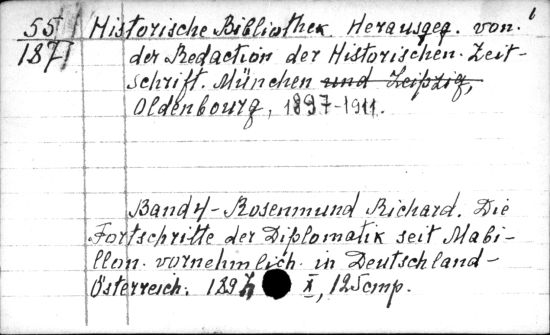 55 Historische Bibliothek. Herausgeg. von.
1871 der Redaction der Historischen Zeit-
schrift. München und Leipzig,
Oldenbourg, 1897-1911.
Band 4 - Rosenmund Richard. Die
Fortschritte der Diplomatik seit Mabi-
llon. vornehmlich in Deutschland-
Österreich. 1897, X, 125 cmp.